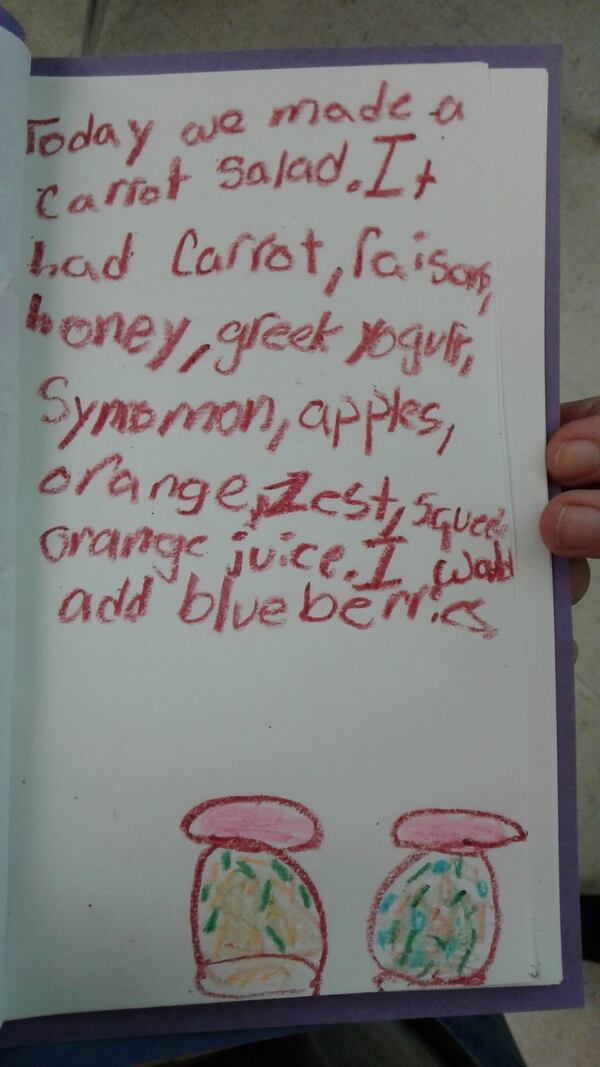 Today we made a
Carrot Salad. It
had Carrot, raisons,
honey, greek yogurt,
Synomon, apples,
orange, Zest, squee
orange juice. I
add blueberries